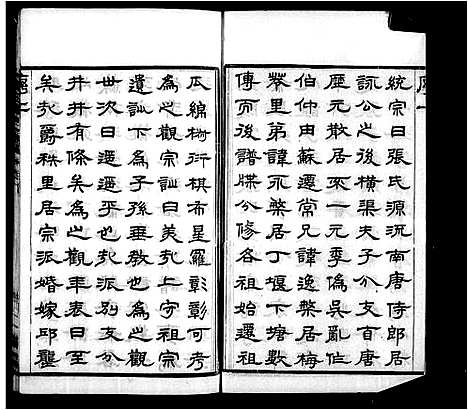 統宗曰張氏源流南唐侍郎居
詠公之後橫渠夫子公支百唐
歷元散居來一元季偽吳亂作
伯仲由蘇遷常兄諱逸槃居梅
里弟諱永槃居丁堰下塘數
傳而後譜牒公修各祖始遷祖
瓜綿椒衍棋布星羅彰彰可考
為之觀宗訓曰美哉上守祖宗
遺訓下為子孫垂教也為之觀
世次曰遷遷乎也哉派別支分
井井有條矣為之觀年表曰至
矣哉爵秩里居宗派婚嫁邱壟